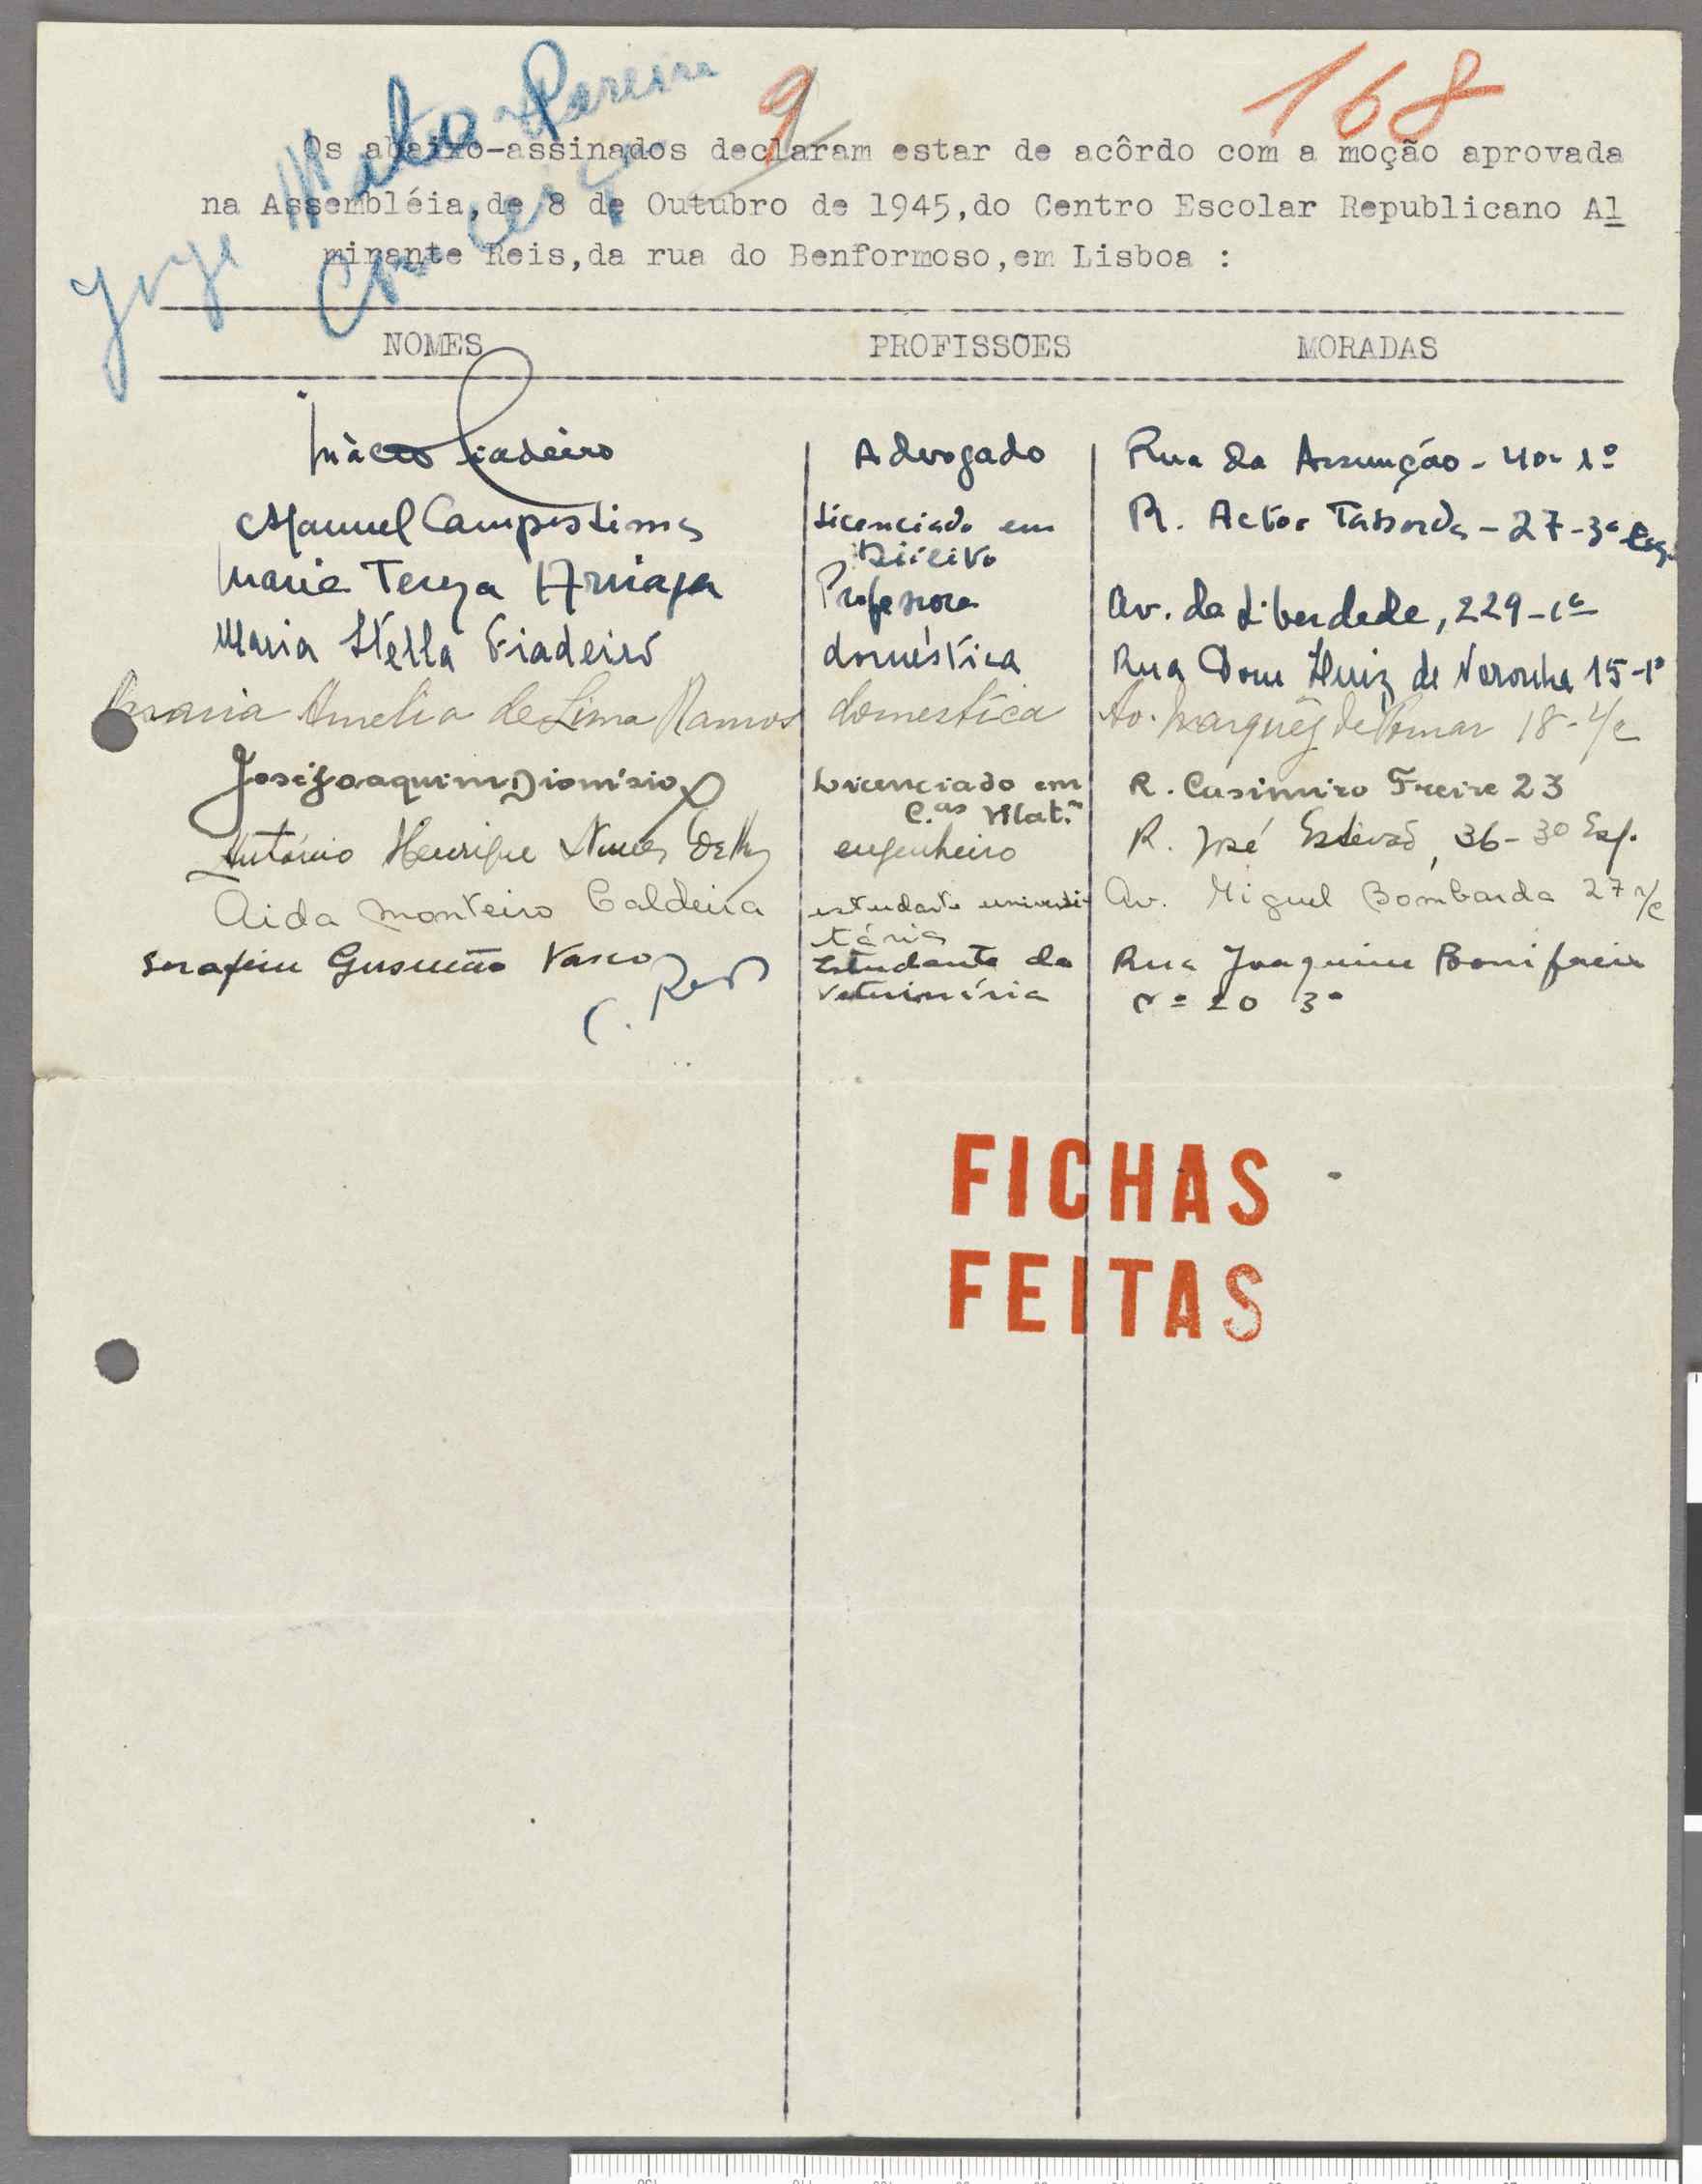 Jorge Mato Pereira
9
168
Os abaixo-assinados declaram estar de acôrdo com a moção aprovada
na Assembléia,de 8 de Outubro de 1945,do Centro Escolar Republicano Al
mirante Reis,da rua do Benformoso,em Lisboa :
NOMES PROFISSOES MORADAS
Inácio Fiadeiro Advogado Rua da Assunção - 40- 1º
Manuel Campos Lima Licenciado em R. Actor Taborda - 27 - 3º Esq.
Direito
Maria Tereza Arriaga Professora Av. da Liberdade, 229-1º
Maria Stella Fiadeiro doméstica Rua Dom Luiz de Noronha 15-1º
Maria Amelia de Lima Ramos domestica Av. Marquês de Tomar 18- r/c
José Joaquim Dionísio Licenciado em R. Casimiro Freire 23
C.as Mat.
António Henrique Nunes engenheiro R. José Estevão, 36- 3º Esq.
Aida Monteiro Caldeira estudante universi- Av. Miguel Bombarda 27 r/c
tária
Serafim Gusmão Vasco Estudante de Rua Joaquim Bonifacio
C. Reis Veterinária nº 20 3º
FICHAS
FEITAS